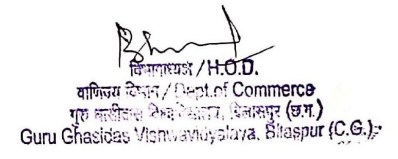 विभागाध्यक्ष / H.O.D.
वाणिज्य विभाग / Dept.of Commerce
गुरु घासीदास विश्वविद्यालय, बिलासपुर (छ.ग.)
Guru Ghasidas Vishwavidyalaya, Bilaspur (C.G.)